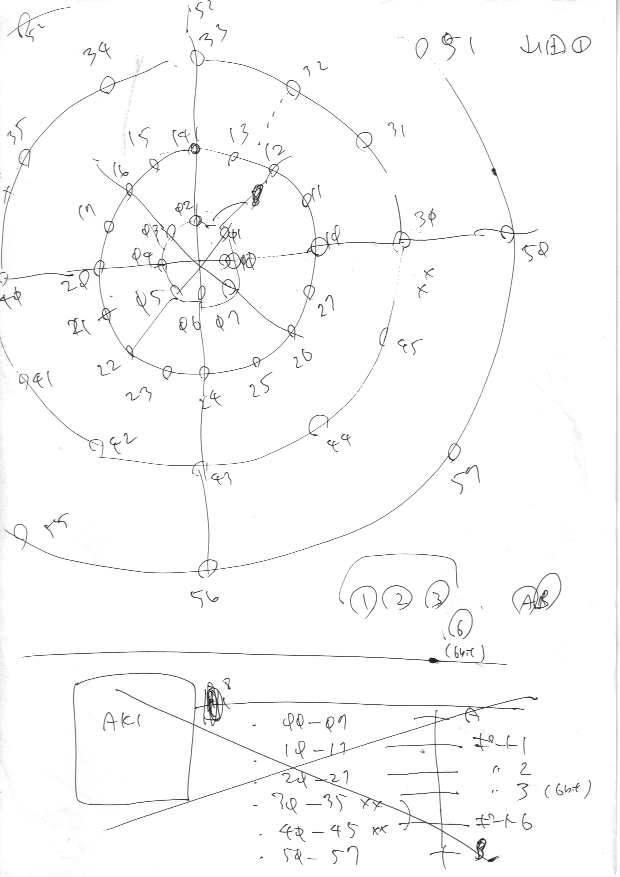 52
33
34
32
051
35
15
14
13
12
31
16
11
17
02
01
03
10
30
04
50
40
20
05
27
21
06
07
26
45
22
41
25
23
24
42
44
43
57
56
1 2 3
A B
6
(6bit)
AKI
8
00-07
A
10-17
ポート1
20-27
〃 2
30-35 xx
〃 3 (6bit)
40-45 xx
ポート6
50-57
B